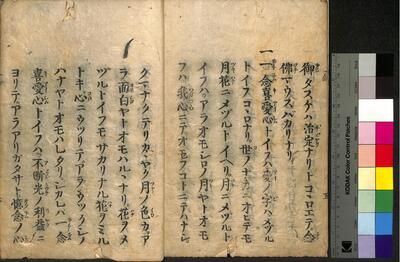 御タスケハ治定ナリトコヽロエテ念
佛マウスバカリナリ
一一念喜愛心トイフハ愛ノ字ハメヅル
トイフコヽロナリ世ノナカニオヒテモ
月花ニメヅルトイヘリ月ニメヅルト
イフハアラオモシロノ月ヤトオモ
フハ我心ニテオモフコトニテハナシ
クマナクテリカヾヤク月ノ色カア
ラ面白ヤトオモハルヽナリ花ヲメ
ヅルトイフモサカリナル花ヲミル
トキ心ニウツリテアラウツクシノ
ハナヤトオモハレタリシカレハ一念
喜愛心トイフハ不断光ノ利益ニ
ヨリテアラアリガタサヤト憶念ノ心
KODAK Color Control Patches